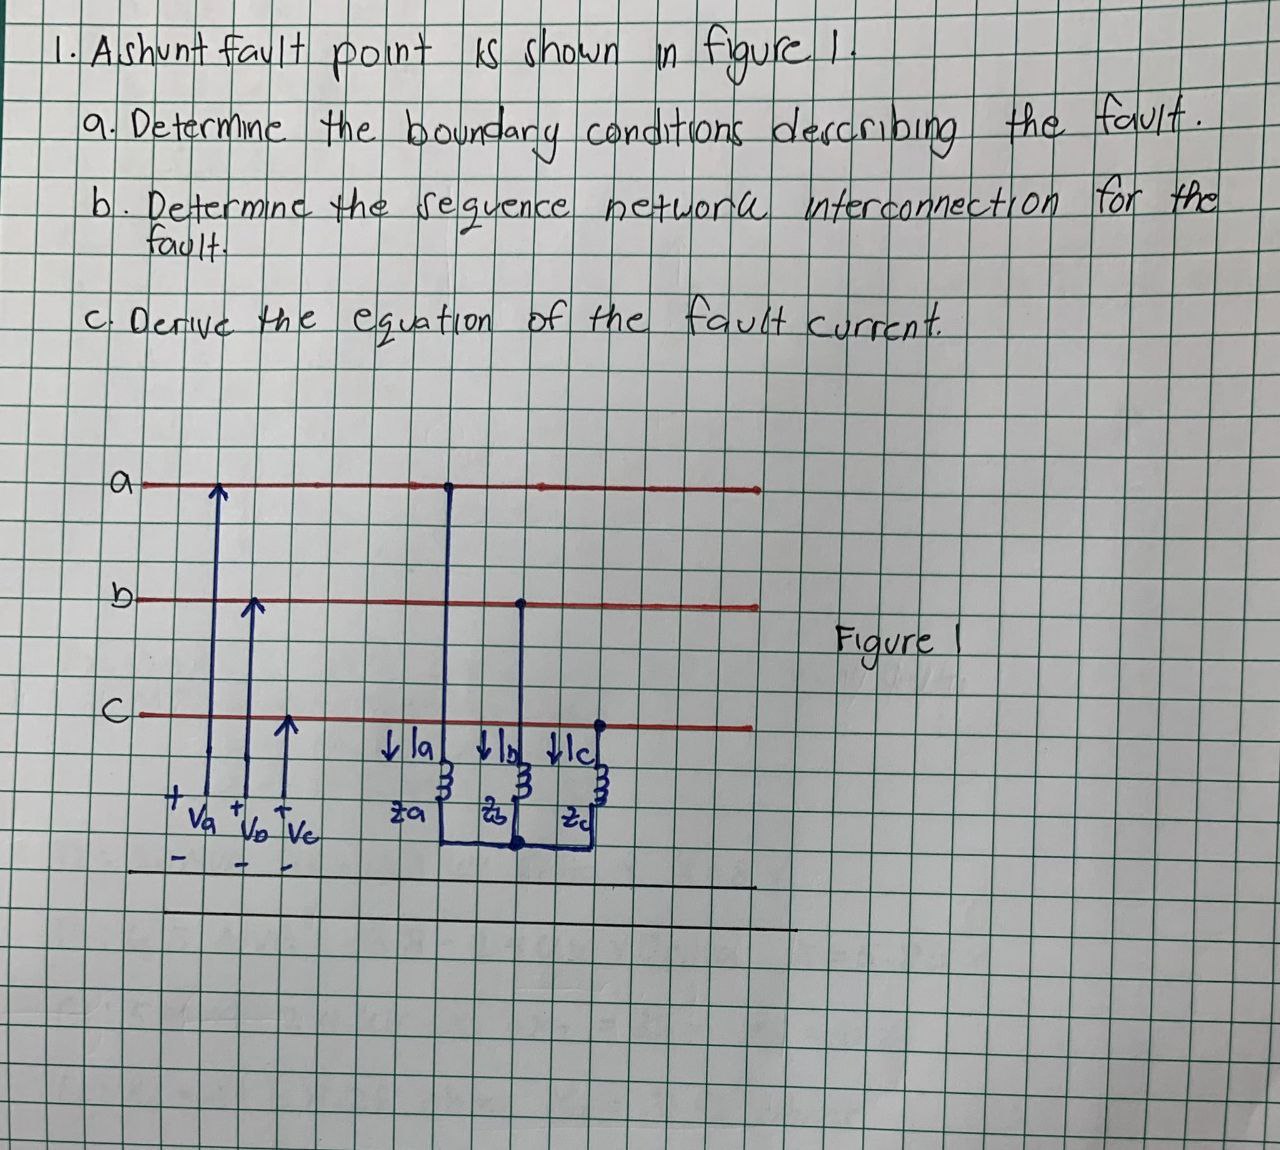 1. A shunt fault point is shown in figure 1.
a. Determine the boundary conditions describing the fault.
b. Determine the sequence network interconnection for the
fault.
c. Derive the equation of the fault current.
a
b
Figure 1
c
Ia Ib Ic
+ Va + Vb + Vc
Za Zb Zc
- - -